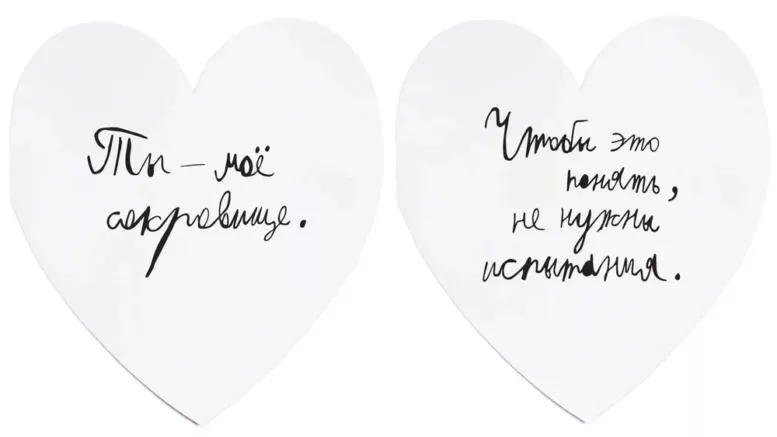 Ты – моё
сокровище.
Чтобы это
понять,
не нужны
испытания.